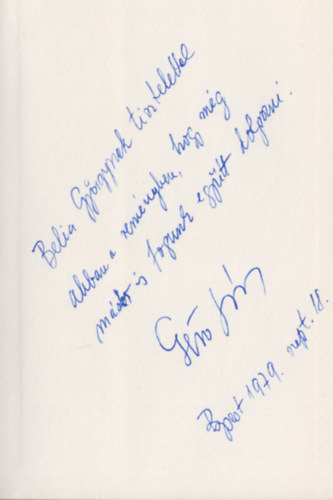 Belia Györgynek tisztelettel
abban a reményben, hogy még
máskor is fogunk együtt dolgozni.
Gerő
Bpest 1979. szept. 18.